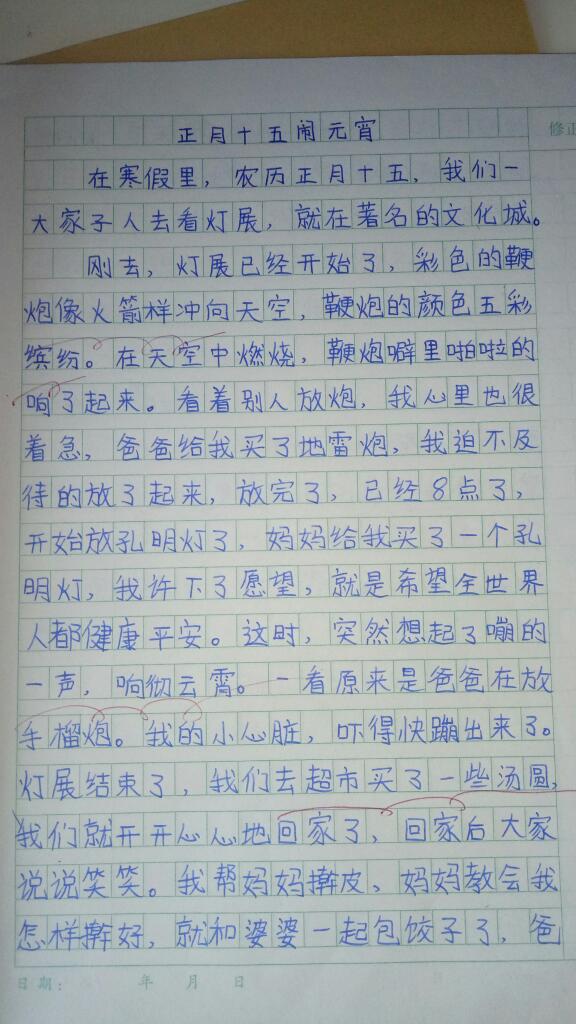 正月十五闹元宵
修正
在寒假里，农历正月十五，我们一
大家子人去看灯展，就在著名的文化城。
刚去，灯展已经开始了，彩色的鞭
炮像火箭样冲向天空，鞭炮的颜色五彩
缤纷。在天空中燃烧，鞭炮噼里啪啦的
响了起来。看着别人放炮，我心里也很
着急，爸爸给我买了地雷炮，我迫不及
待的放了起来，放完了，已经8点了，
开始放孔明灯了，妈妈给我买了一个孔
明灯，我许下了愿望，就是希望全世界
人都健康平安。这时，突然想起了嘣的
一声，响彻云霄。一看原来是爸爸在放
手榴炮。我的小心脏，吓得快蹦出来了。
灯展结束了，我们去超市买了一些汤圆，
我们就开开心心地回家了，回家后大家
说说笑笑。我帮妈妈擀皮、妈妈教会我
怎样擀好，就和婆婆一起包饺子了，爸
日期： 年 月 日